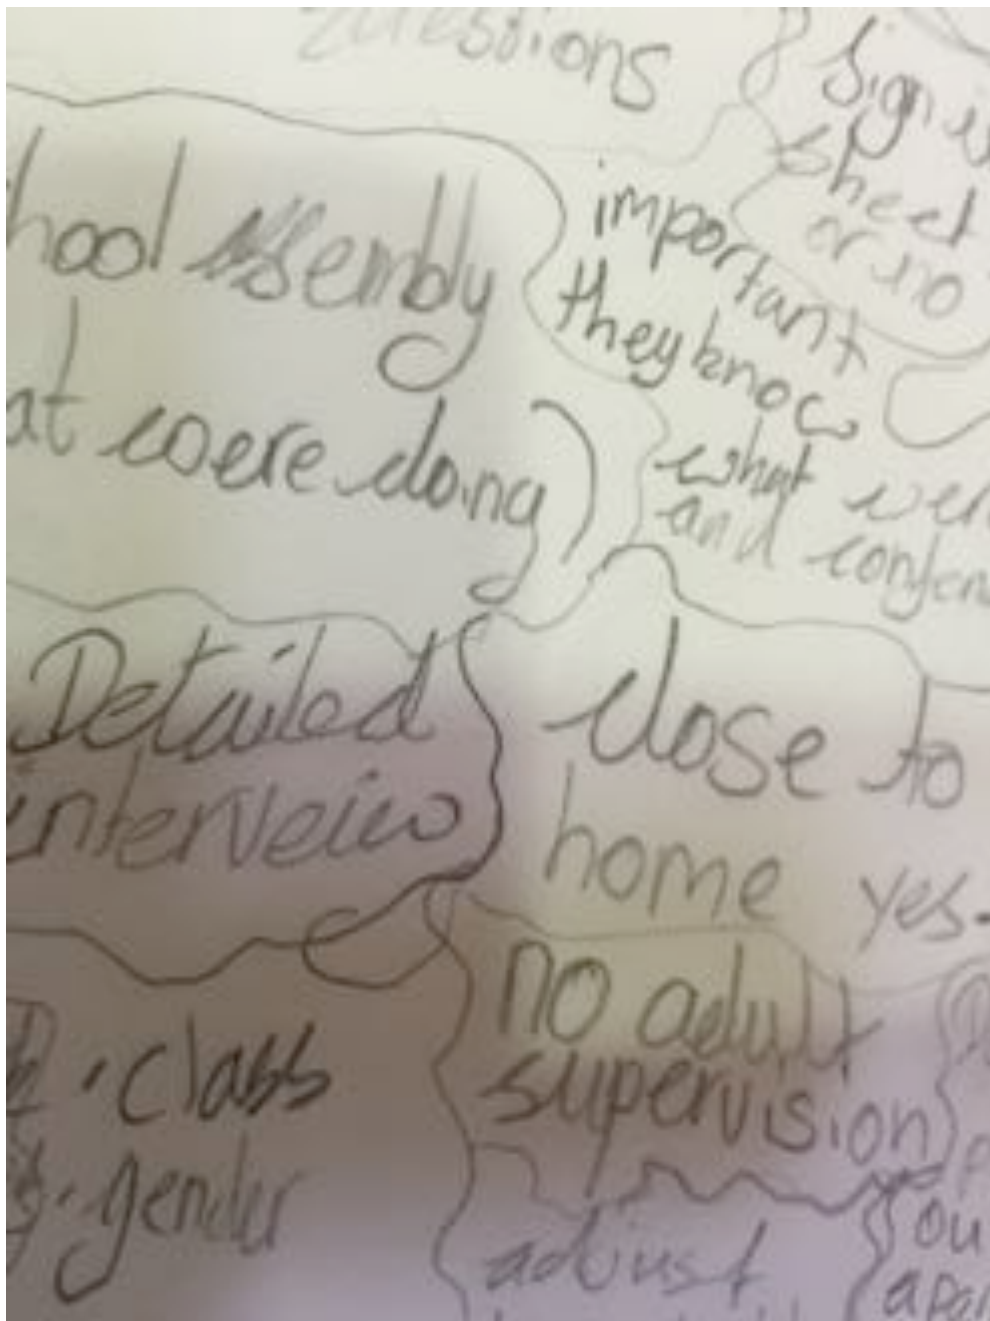 Questions
Sign
sheet
or no
hool assembly
at were doing
important
they know
what wer
and confen
Detailed
interveiw
close to
home
yes-
no adult
supervision
• class
• gender
adjust
ou
apar